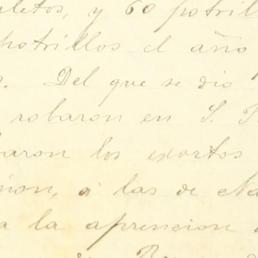 letos, y 60 potrill
potrillos el año
s. Del que se dio
robaron en S. F
aron los exortos
ñon, á las de Na
a la aprencion